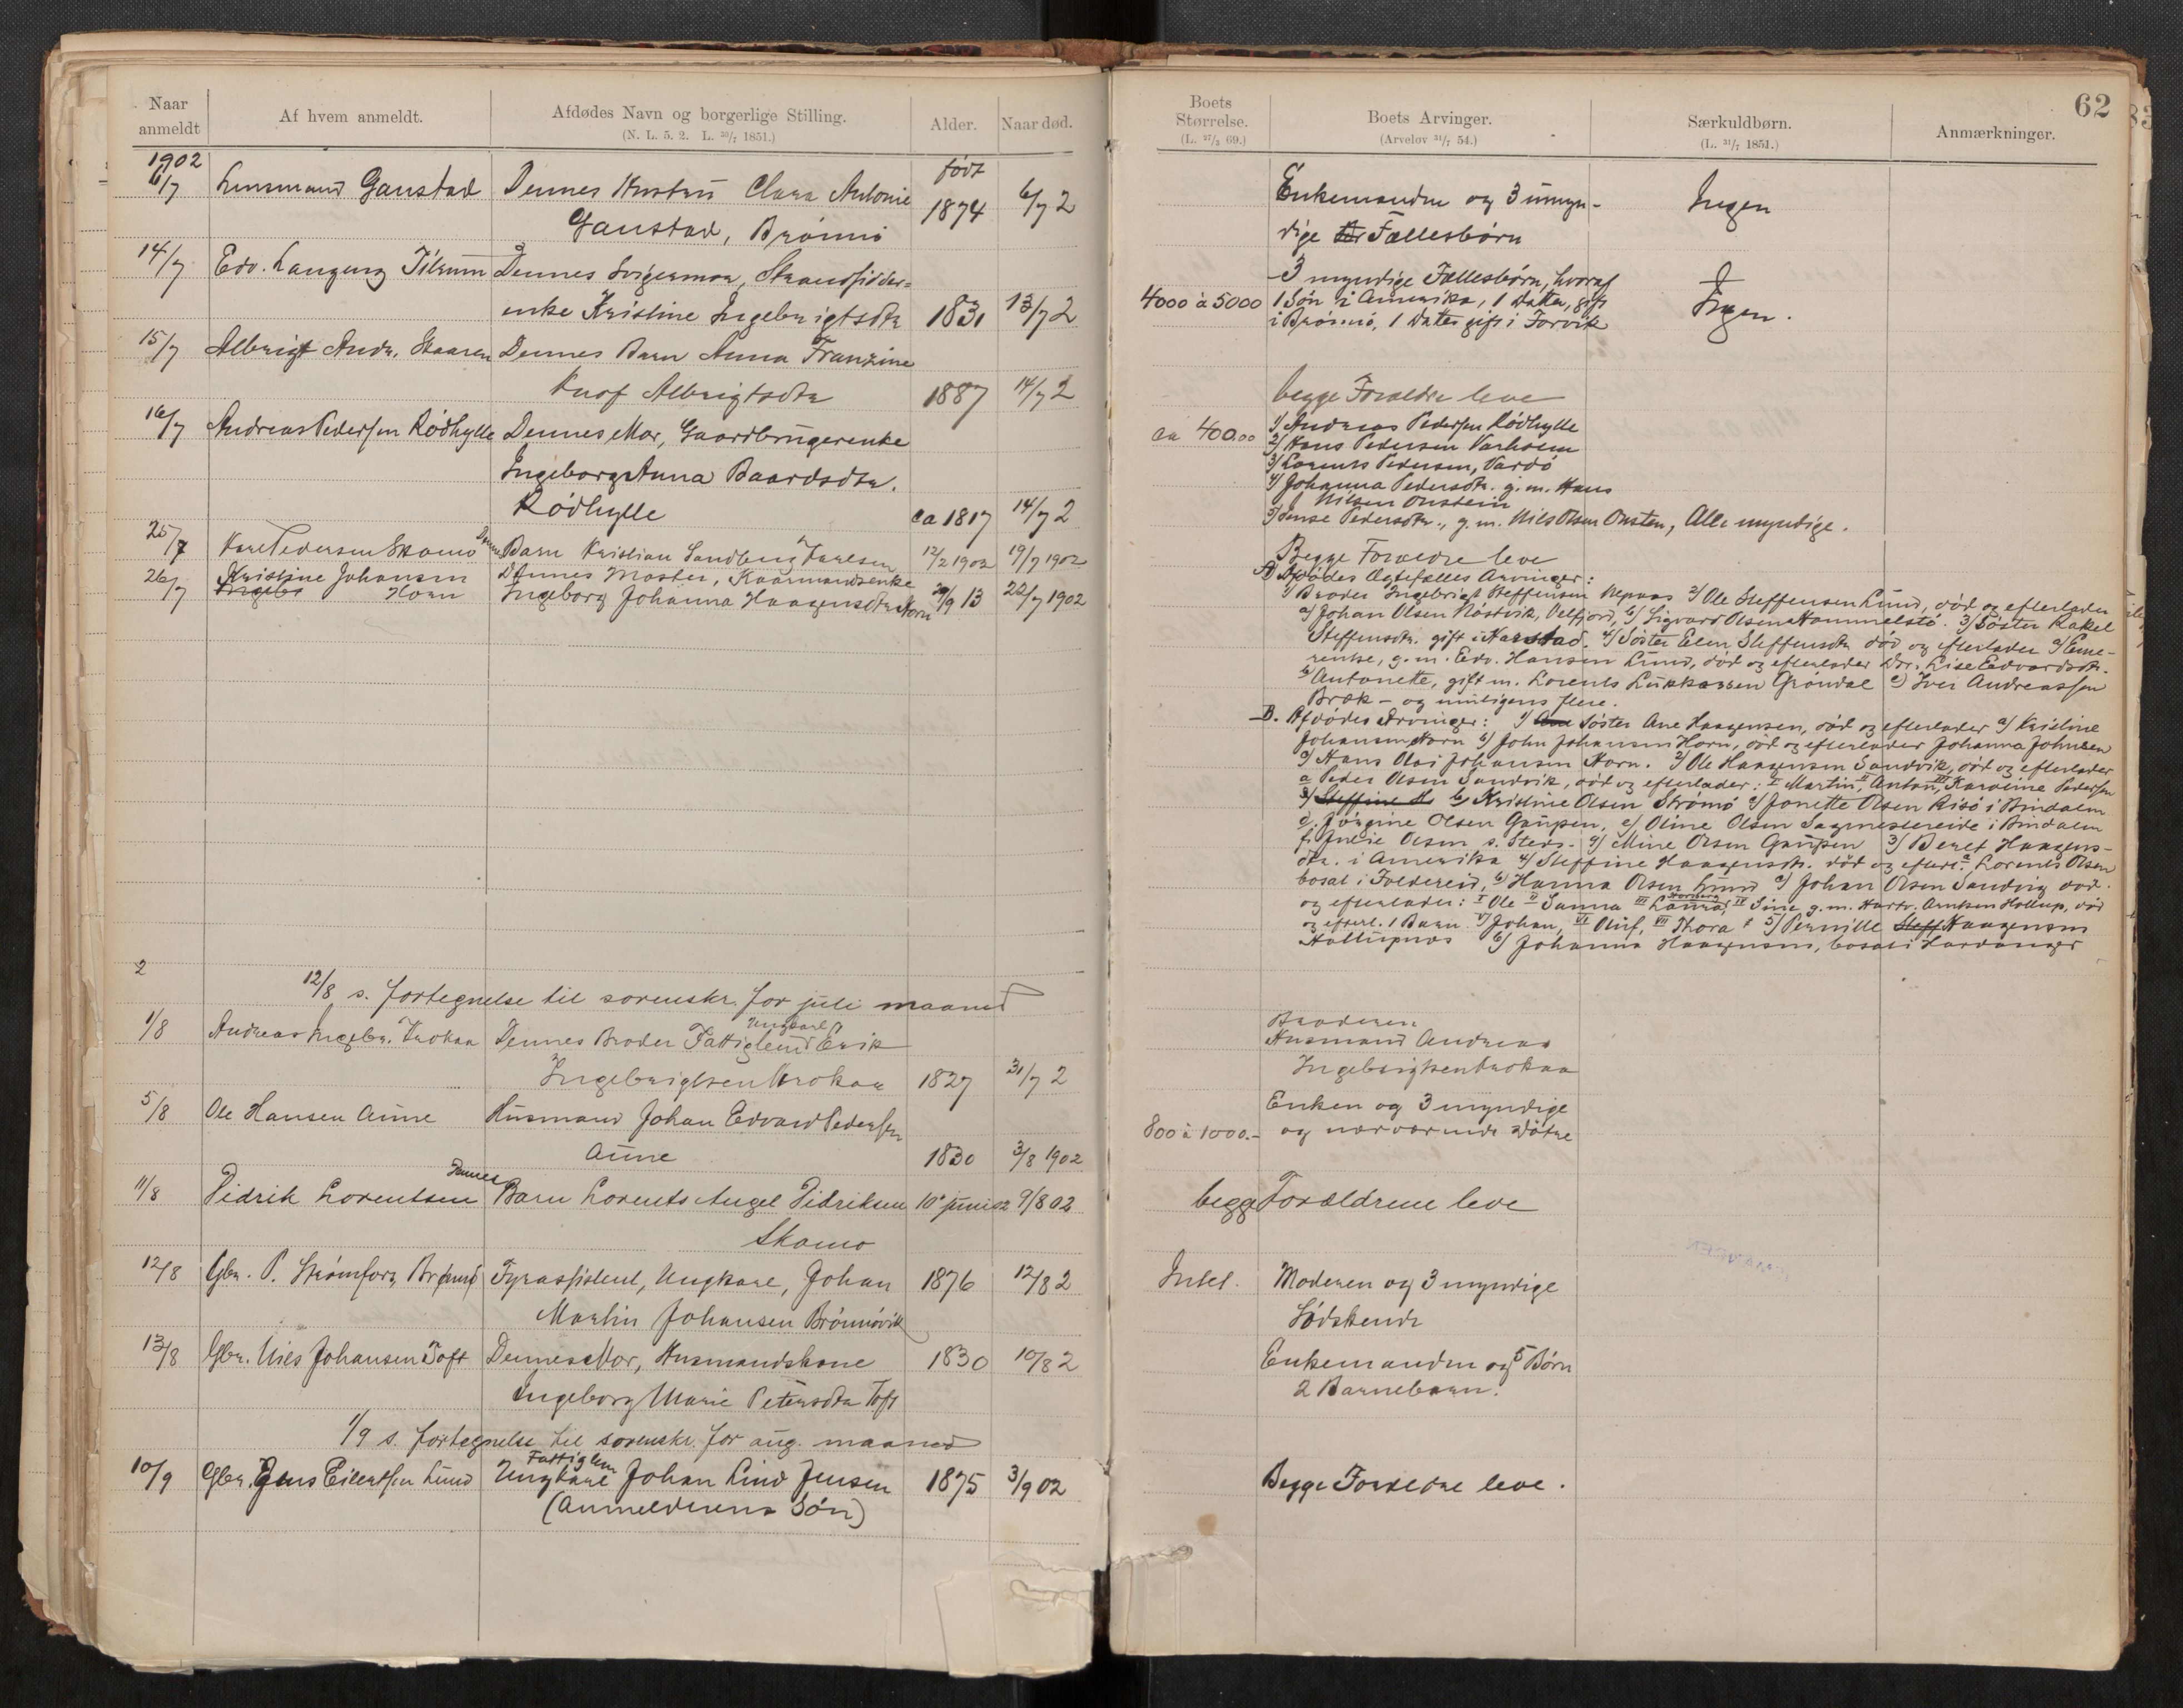 Naar anmeldt
Af hvem anmeldt.
Afdødes Navn og borgerlige Stilling.
(N. L. 5. 2. L. 30/7 1851.)
Alder.
Naar død.
1902
født
6/7 Lensmand Ganstad Dennes Hustru Clara Antonie
Ganstad, Brønnø 1874 6/7 2
14/7 Edv. Lanzung Tilrum Dennes Svigermor, Strandsidder-
enke Kristine Ingebrigtsdtr 1831 13/7 2
15/7 Albrigt Andr. Skaaren Dennes Barn Anna Franzine
Knof Albrigtsdtr 1887 14/7 2
16/7 Andreas Pedersen Rødhylle Dennes Mor, Gaardbrugerenke
Ingeborg Anna Baardsdtr.
Rødhylle ca 1817 14/7 2
25/7 Karl Pedersen Skomo Dennes Barn Kristian Sandberg Karlsen 12/2 1902 19/7 1902
26/7 Kristine Johansen Dennes Moster, Kaarmandsenke
Ingebr Horn Ingeborg Johanna Haagensdtr Horn 29/9 13 22/7 1902
2
12/8 s. fortegnelse til sorenskr. for juli maaned
1/8 Andreas Ingebr. Krokaa Dennes Broder Fattiglem Ungkarl Erik
Ingebrigtsen Krokaa 1827 31/7 2
5/8 Ole Hansen Aune Husmand Johan Edvard Pedersen
Aune 1830 3/8 1902
11/8 Didrik Lorentsen Dennes Barn Lorents Angel Didriksen 10' juni 02 9/8 02
Skomo
12/8 Gbr. P. Strømforg Brønnø Fyrassistent, Ungkarl, Johan 1876 12/8 2
Martin Johansen Brønnøvik
13/8 Gbr. Nils Johansen Toft Dennes Mor, Husmandskone 1830 10/8 2
Ingeborg Marie Petersdtr Toft
1/9 s. fortegnelse til sorenskr. for aug. maaned
Fattiglem
10/9 Gbr. Jens Eilertsen Lund Ungkarl Johan Lind Jensen 1875 3/9 02
(Anmelderens Søn)
62
Boets Størrelse.
(L. 27/3 69.)
Boets Arvinger.
(Arvelov 31/7 54.)
Særkuldbørn.
(L. 31/7 1851.)
Anmærkninger.
Enkemanden og 3 umyn- Ingen
dige Fællesbørn
3 myndige Fællesbørn, hvoraf
4000 à 5000 1 Søn i Amerika, 1 Datter, gift Ingen.
i Brønnø, 1 Datter gift i Forvik
begge Forældre leve
ca 400.00 1) Andreas Pedersen Rødhylle
2) Hans Pedersen Varholm
3) Lorents Pedersen, Vardø
4) Johanna Pedersdtr. g. m. Hans
Nilsen Onstein
5) Jense Pedersdtr., g. m. Nils Olsen Onsten, Alle myndige.
Begge Forældre leve
A) Afdødes Ægtefælles Arvinger:
1) Broder Ingebrigt Steffensen Repnæs 2) Ole Steffensen Lund, død og efterlader
a) Johan Olsen Nøstvik, Velfjord, b) Sigvard Olsen Hommelstø. 3) Søster Rakel
Steffensdtr. gift i Harstad. 4) Søster Elen Steffensdtr død og efterlader a) Eme-
rense, g. m. Edv. Hansen Lund, død og efterlader Dtr. Lise Edvardsdtr.
b) Antonette, gift m. Lorents Lukkassen Grøndal c) Iver Andreassen
Bræk – og muligens flere.
B. Afdødes Arvinger: 1) Søster Ane Haagensen, død og efterlader a) Kristine
Johansen Horn b) John Johansen Horn, død og efterlader Johanna Johnsen
c) Hans Olai Johansen Horn. 2) Ole Haagensen Sandvik, død og efterlader
a Peder Olsen Sandvik, død og efterlader: I Martin, II Anton, III Karoline Pedersen
3) Steffine H b) Kristine Olsen Strømø c) Jonette Olsen Risø i Bindalen
d. Jørgine Olsen Gaupen, e) Oline Olsen Sagmestereide i Bindalen
f. Julie Olsen s. Steds. g) Mine Olsen Gaupen 3) Beret Haagens-
dtr. i Amerika 4) Steffine Haagensdtr. død og efterl. a Lorents Olsen
bosat i Foldereid, b) Hanna Olsen Lund c) Johan Olsen Sandvig død
og efterlader: I Ole II Sanna III Laura, IV Sine g. m. Hartv. Arntsen Hollup, død
og efterl. 1 Barn V) Johan, VI Oluf, VII Thora 5) Pernille Steff Haagensen
Hallupnæs 6) Johanna Haagensen, bosat i Hardanger
Broderen
Husmand Andreas
Ingebrigtsen Krokaa
Enken og 3 myndige
800 à 1000.- og nærværende Døtre
begge Forældrene leve
Intet. Moderen og 3 myndige
Sødskende
Enkemanden og 5 Børn
2 Barnebarn.
Begge Forældre leve.